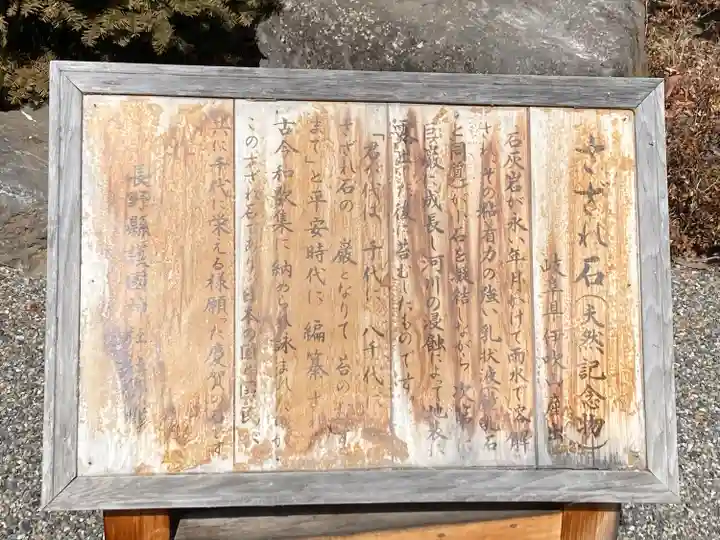 さざれ石（天然記念物）
岐阜県伊吹山産出
石灰岩が永い年月かけて雨水で溶解
され、その粘着力の強い乳状液が乳石
と同質 石を凝結しながら 次第に
巨巌に成長し河川の浸蝕によって地表に
露出した後に苔むしたものです
「君が代は 千代に 八千代に
さざれ石の 巌となりて 苔のむす
まで」と平安時代に編纂さ
古今和歌集に納められ詠まれ
このさざれ石であり、日本の国と国民
共に千代に栄える様願った慶賀の
長野縣護國神社